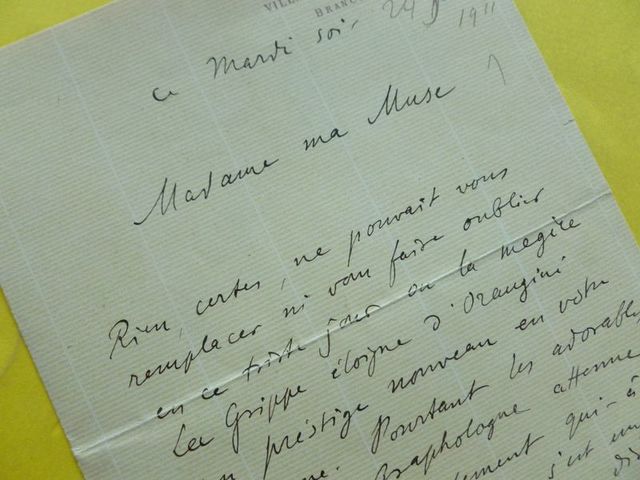 VILL
BRANC
ce Mardi soir 1911
Madame ma Muse
Rien, certes, ne pouvait vous
remplacer ni vous faire oublier
en ce triste jour où la
La Grippe éloigne d'Orangini
prestige nouveau en votre
Pourtant les adorables
Graphologue
qui-à
s'est